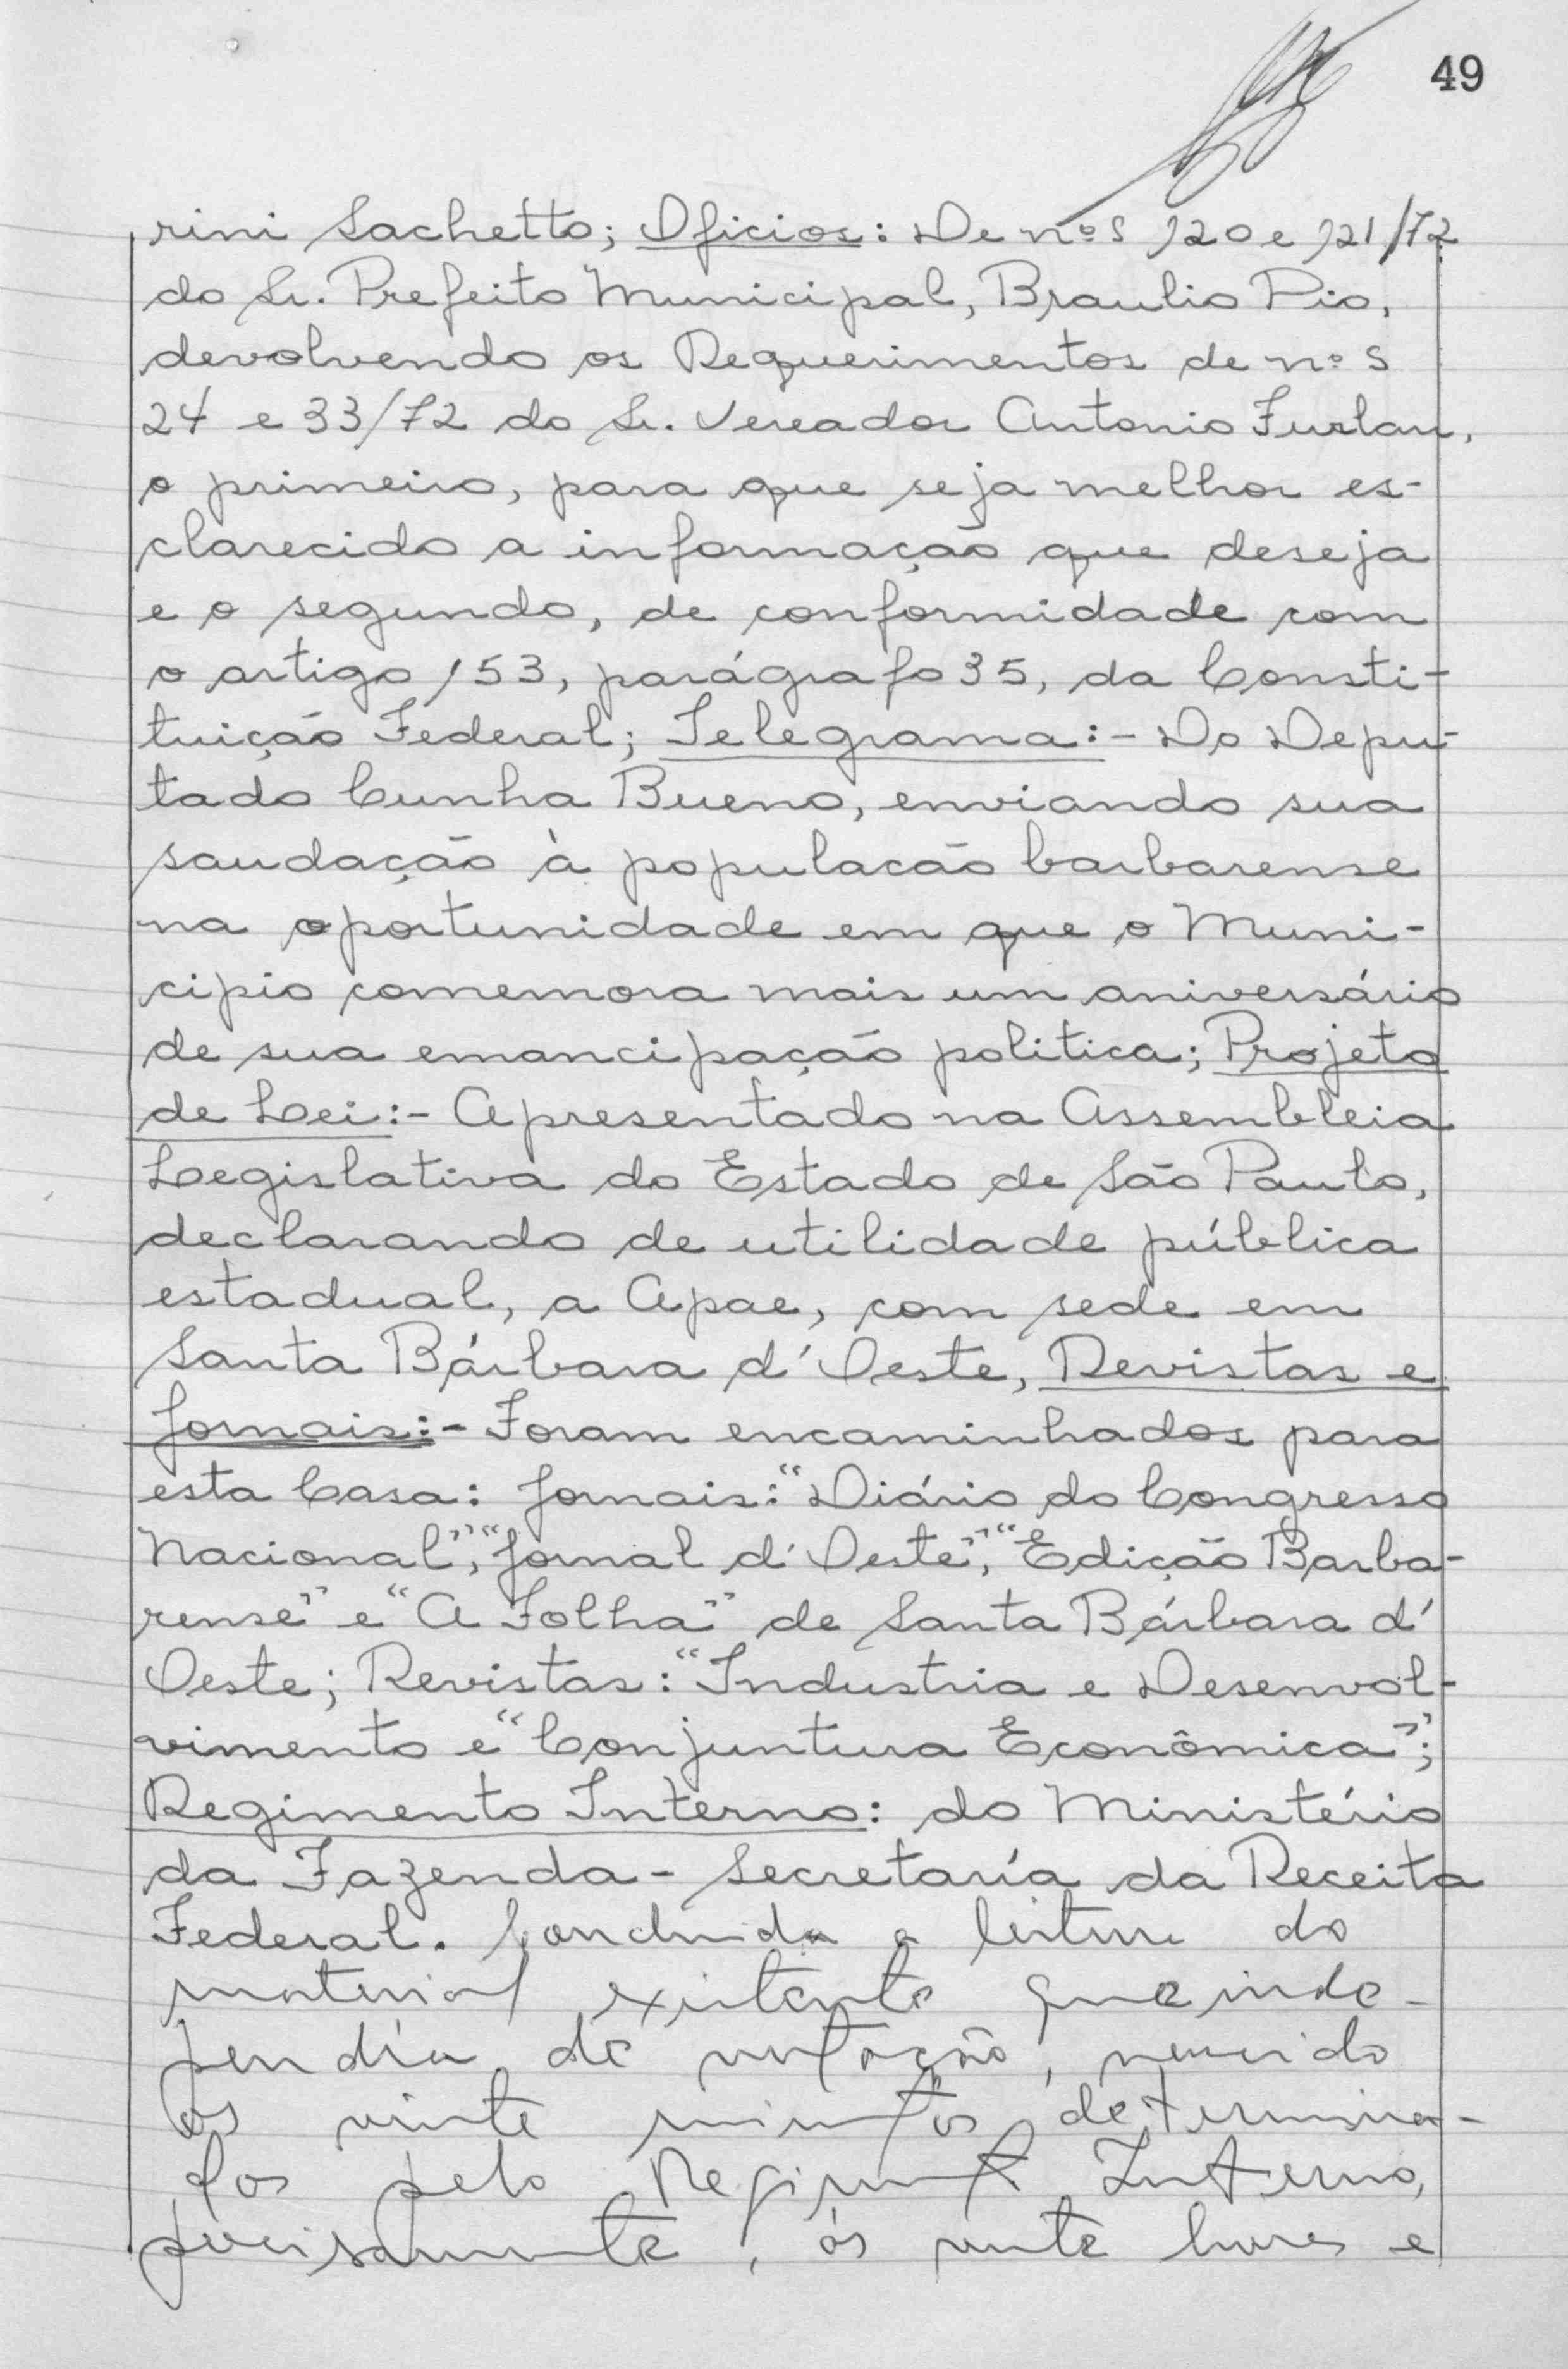 49
rini Sachetto; Oficios: De nºs 120 e 121/72
do Sr. Prefeito Municipal, Braulio Pio,
devolvendo os Requerimentos de nºs
24 e 33/72 do Sr. Vereador Antonio Furlan,
o primeiro, para que seja melhor es-
clarecido a informação que deseja
e o segundo, de conformidade com
o artigo 153, parágrafo 35, da Consti-
tuição Federal; Telegrama:- Do Depu-
tado Cunha Bueno, enviando sua
saudação à populacão barbarense
na oportunidade em que o Muni-
cipio comemora mais um aniversário
de sua emancipação politica; Projeto
de Lei:- Apresentado na Assembleia
Legislativa do Estado de São Paulo,
declarando de utilidade pública
estadual, a Apae, com sede em
Santa Bárbara d'Oeste, Revistas e
Jornais:- Foram encaminhados para
esta Casa: Jornais: "Diário do Congresso
Nacional", "Jornal d'Oeste", "Edição Barba-
rense" e "A Folha" de Santa Bárbara d'
Oeste; Revistas: "Industria e Desenvol-
vimento e "Conjuntura Econômica";
Regimento Interno: do Ministério
da Fazenda - Secretaría da Receita
Federal. Concluida a leitura do
material existente que inde-
pendia de votação, vencido
os vinte minutos determina-
dos pelo Regimento Interno,
precisamente, às vinte horas e